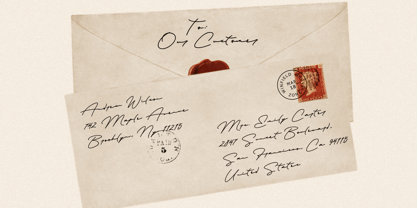 To:
Our Customer
Andrew Wilson
742 Maple Avenue
Brooklyn Ny 11215
PAID
5
Mrs. Emily Carter
2847 Sunset Boulevard.
San Francisco Ca 94115
United States